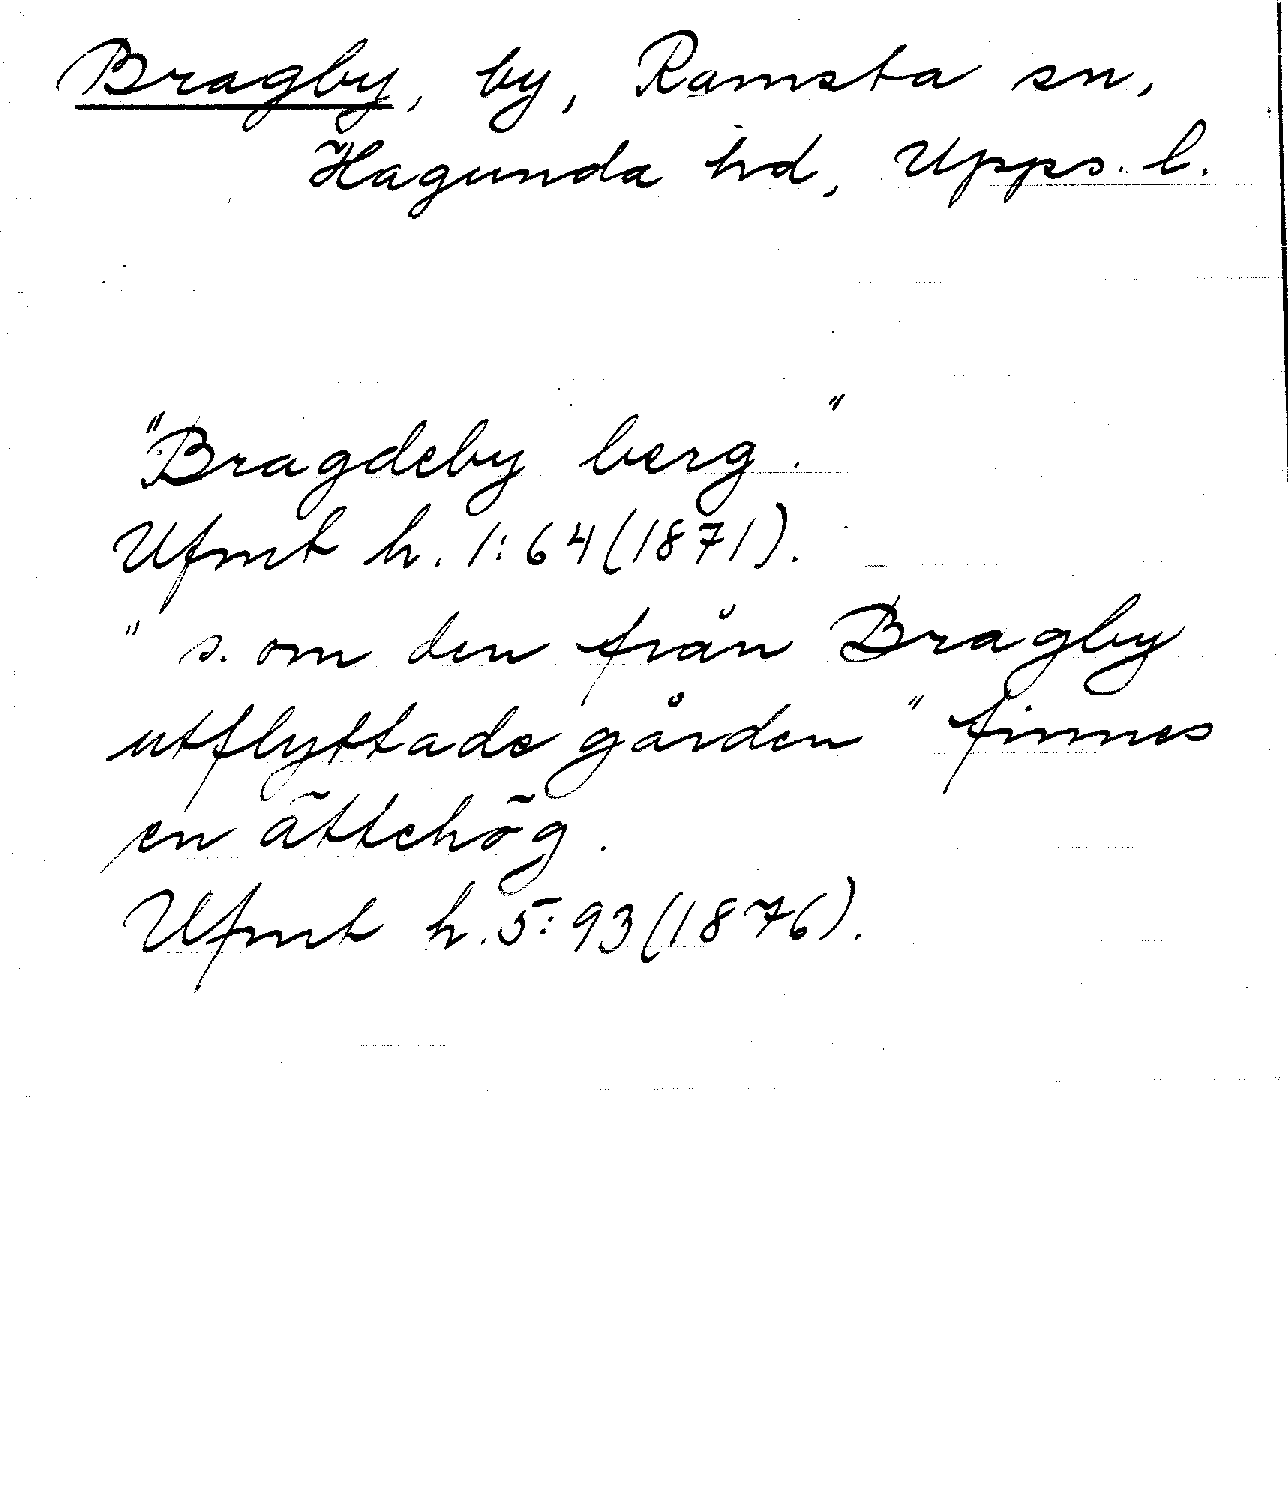 Bragby, by, Ramsta sn,
Hagunda hd, Upps. l.
"Bragdeby berg."
Ufmt h. 1:64 (1871).
" s. om den från Bragby
utflyttade gården" finnes
en ättehög.
Ufmt h. 5:93 (1876).